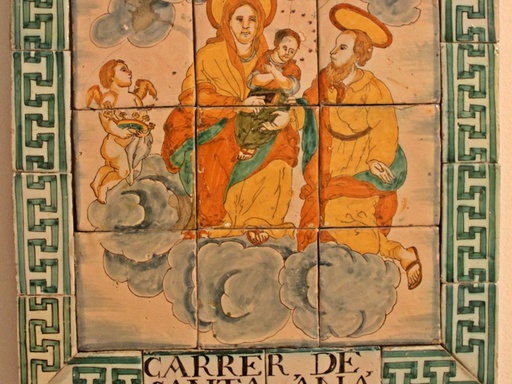 CARRER, DE,
SANTA ANA